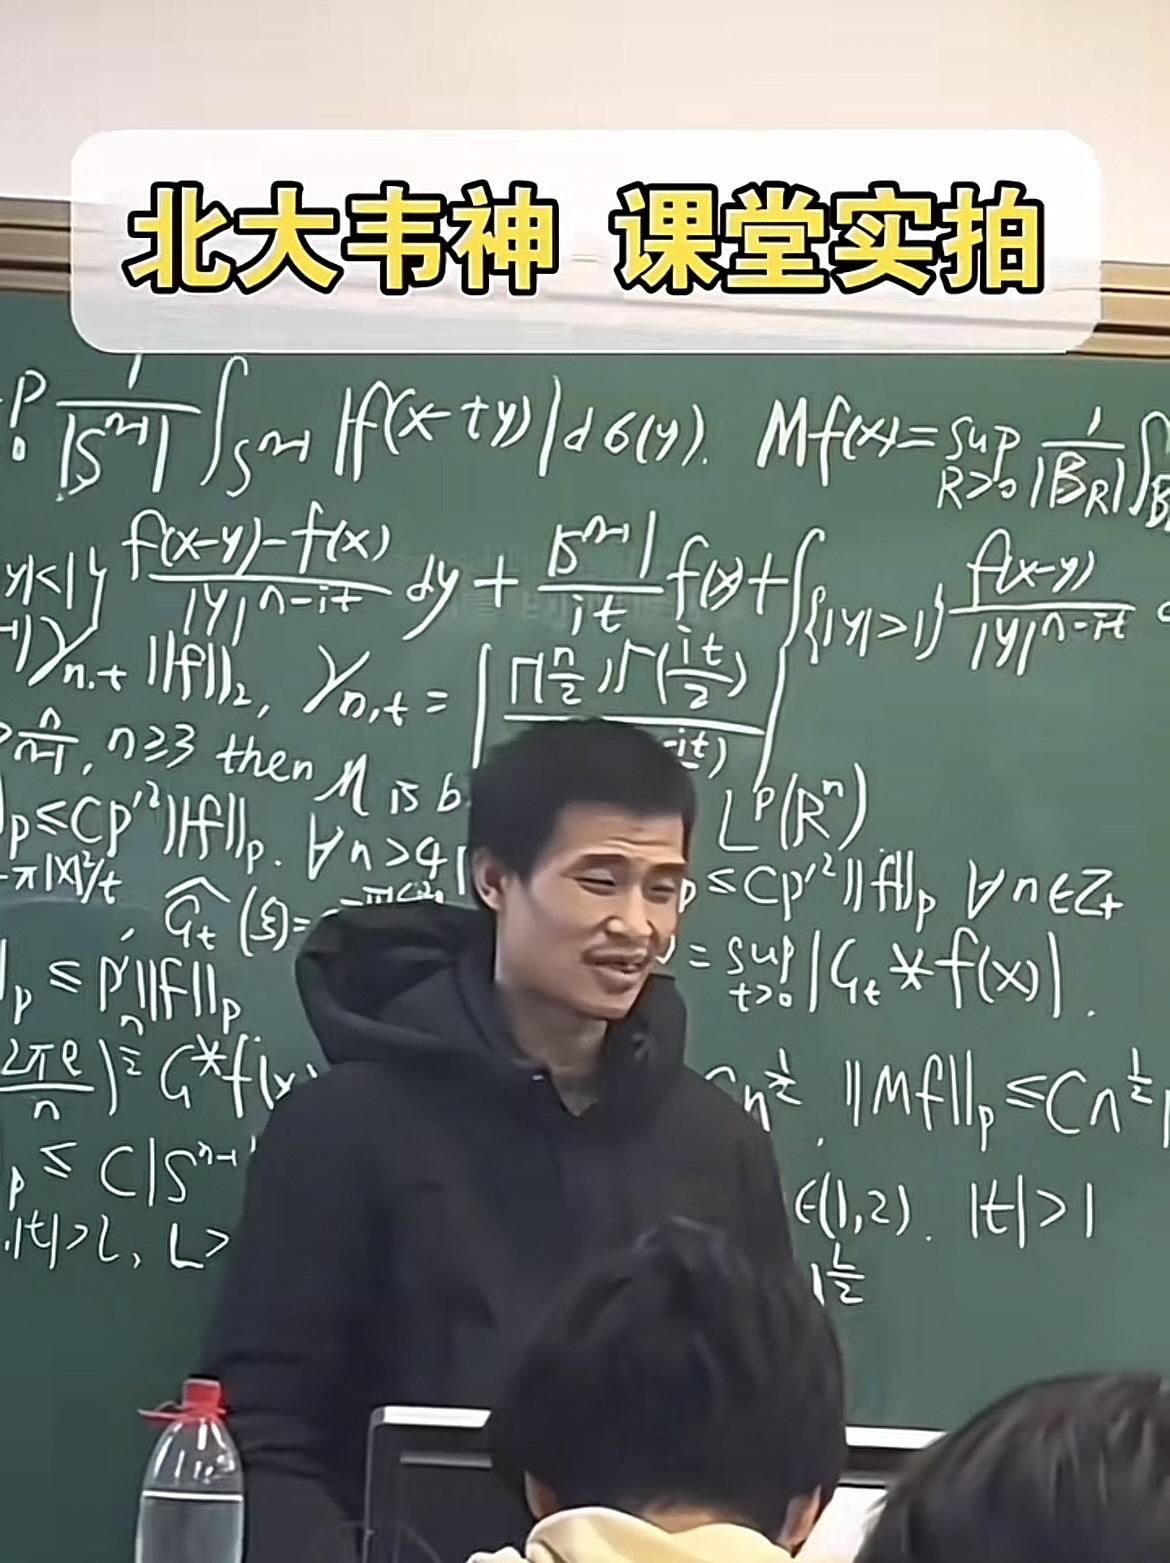 北大韦神 课堂实拍
P 1/|S^{n-1}| ∫_{S^{n-1}} |f(x-ty)|dσ(y). Mf(x)=sup_{R>0} 1/|B_R| ∫_B
|y|<1} f(x-y)-f(x)/|y|^{n-it} dy + |S^{n-1}|/it f(x)+∫_{{|y|>1}} f(x-y)/|y|^{n-it}
γ_{n,t} ||f||_2, γ_{n,t} = |Γ(n/2)Γ(it/2)/ -it)|
>n/n-1, n≥3 then M is b L^p(R^n)
||_p≤Cp'^2||f||_p. ∀n>4 ||_p ≤Cp'^2||f||_p ∀n∈Z_+
-π|x|^2/t, Ĝ_t(ξ)= = sup_{t>0}|G_t*f(x)|.
||_p ≤ p'||f||_p
2πe/n)^{n/2} G*f(x) Cn^{1/2}. ||Mf||_p ≤Cn^{1/2}
||_p ≤ C|S^{n-1} ∈(1,2). |t|>1
.|t|>L, L>